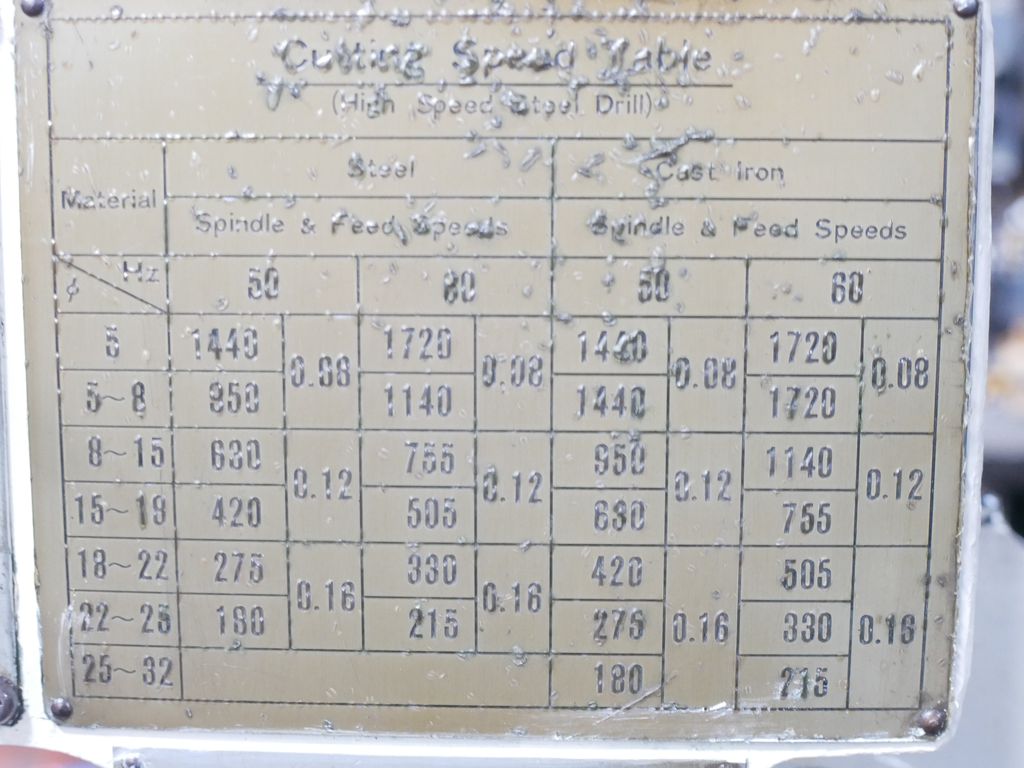 Cutting Speed Table
(High Speed Steel Drill)
Material Steel Cast Iron
Spindle & Feed Speeds Spindle & Feed Speeds
Hz
ϕ 50 60 50 60
5 1440 0.08 1720 0.08 1440 0.08 1720 0.08
5~8 950 1140 1440 1720
8~15 630 0.12 755 0.12 950 0.12 1140 0.12
15~19 420 505 630 755
18~22 275 0.16 330 0.16 420 0.16 505 0.16
22~25 180 215 275 330
25~32 180 215